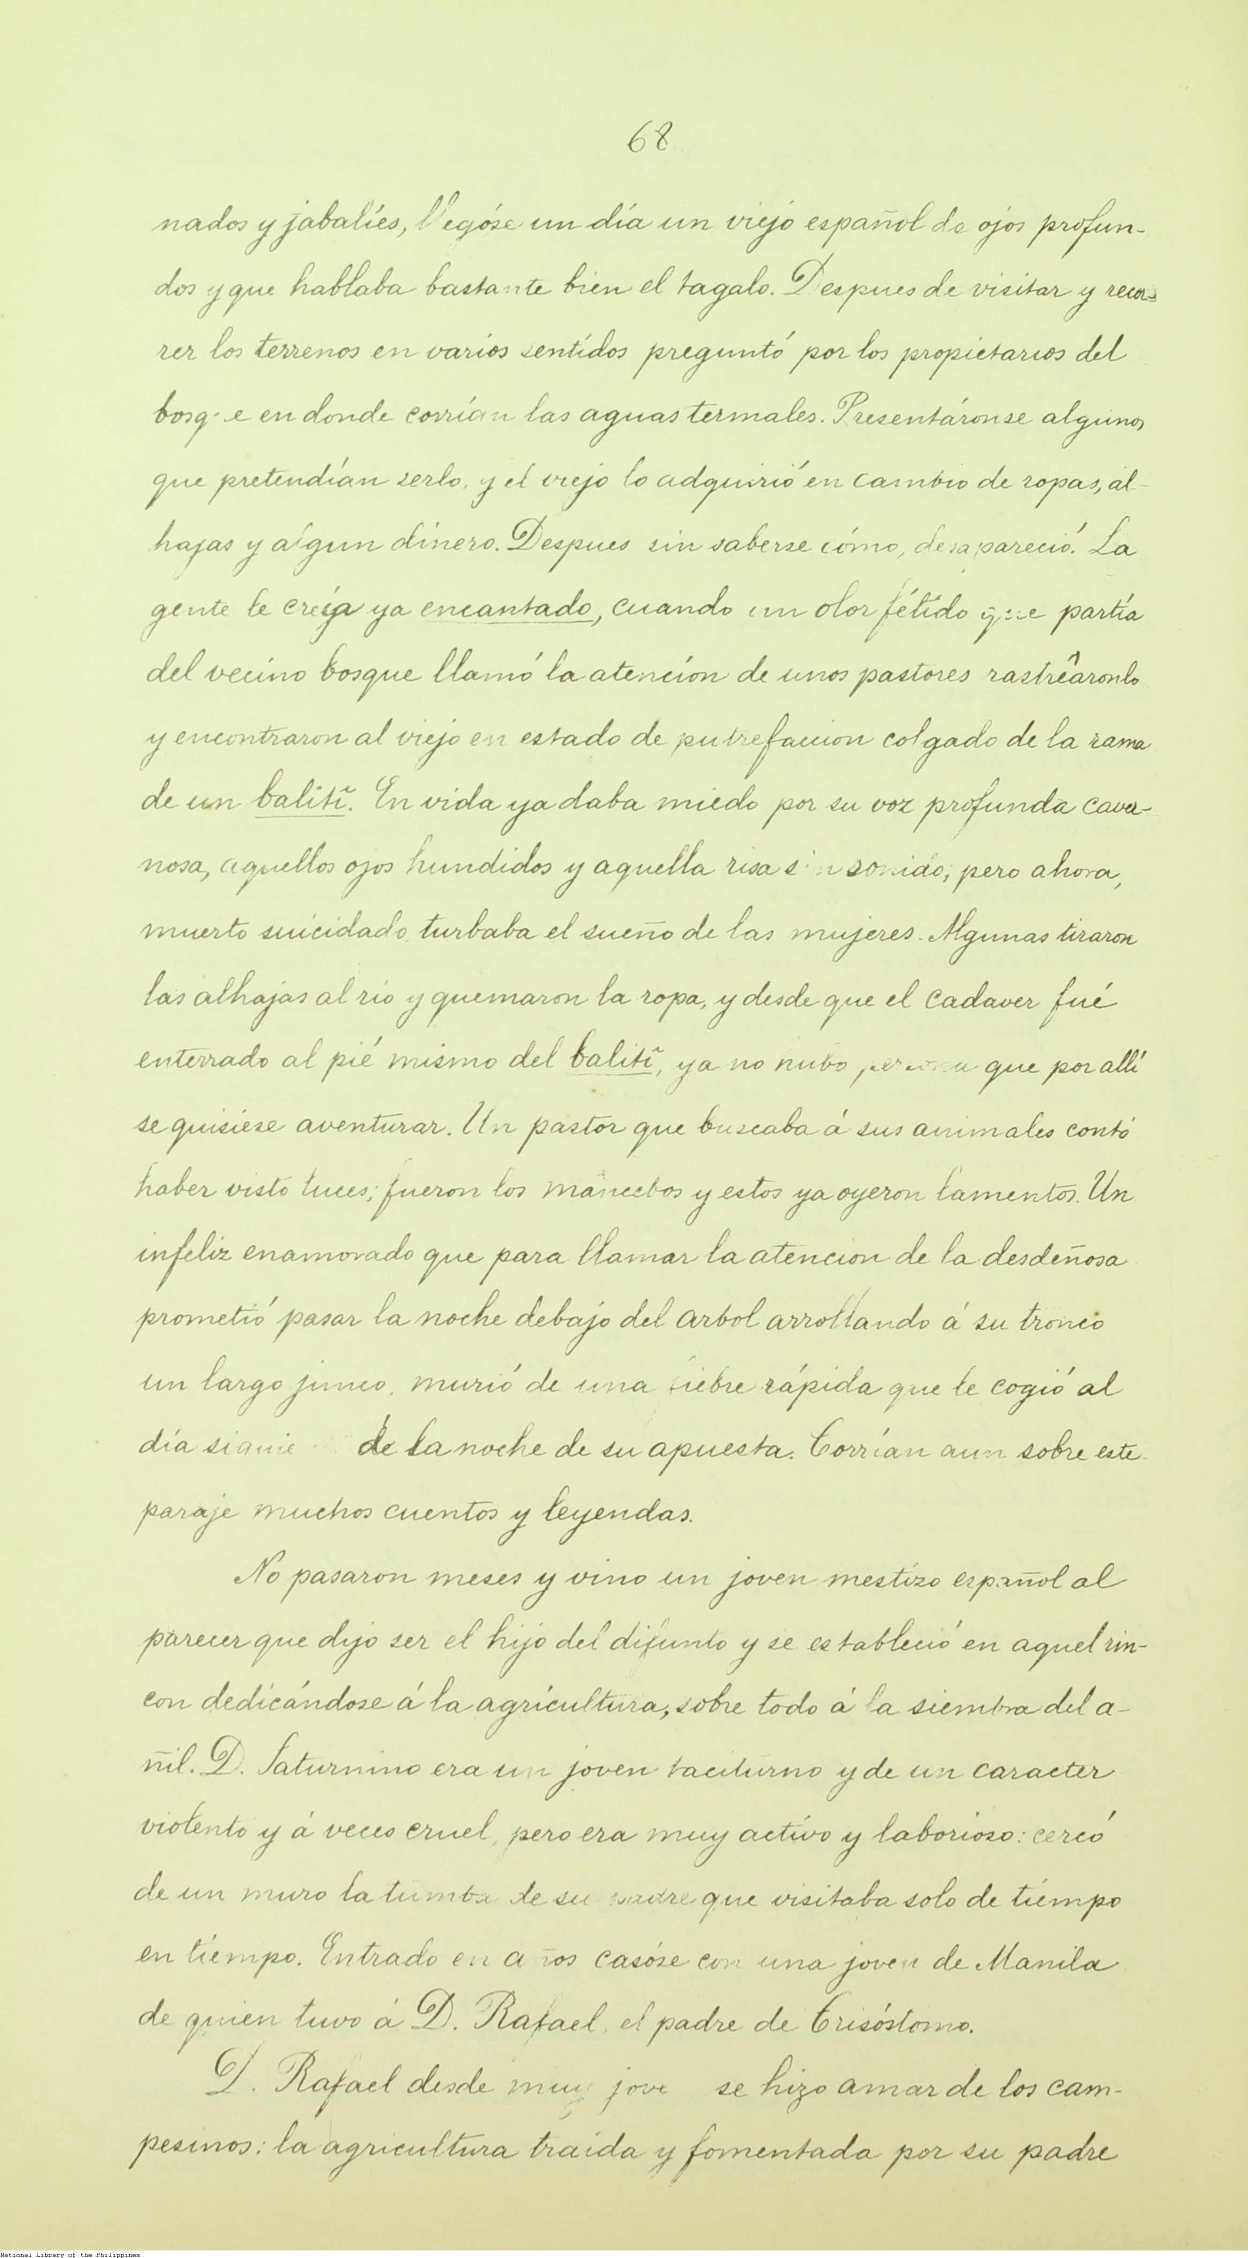 68
nados y jabalíes, llegóse un día un viejo español de ojos profun-
dos y que hablaba bastante bien el tagalo. Despues de visitar y recor-
rer los terrenos en varios sentidos preguntó por los propietarios del
bosque en donde corrían las aguas termales. Presentáronse algunos
que pretendían serlo, y el viejo lo adquirió en cambio de ropas, al-
hajas y algun dinero. Despues sin saberse cómo, desapareció. La
gente le creía ya encantado, cuando un olor fétido que partía
del vecino bosque llamó la atención de unos pastores rastreáronlo
y encontraron al viejo en estado de putrefaccion colgado de la rama
de un balitî. En vida ya daba miedo por su voz profunda caver-
nosa, aquellos ojos hundidos y aquella risa sin sonido; pero ahora,
muerto suicidado, turbaba el sueño de las mujeres. Algunas tiraron
las alhajas al rio y quemaron la ropa, y desde que el cadaver fué
enterrado al pié mismo del balitî, ya no hubo persona que por allí
se quisiese aventurar. Un pastor que buscaba á sus animales contó
haber visto luces; fueron los mancebos y estos ya oyeron lamentos. Un
infeliz enamorado que para llamar la atencion de la desdeñosa
prometió pasar la noche debajo del arbol arrollando á su tronco
un largo junco, murió de una fiebre rápida que le cogió al
día siguie de la noche de su apuesta. Corrían aun sobre este
paraje muchos cuentos y leyendas.
No pasaron meses y vino un joven mestizo español al
parecer que dijo ser el hijo del difunto y se estableció en aquel rin-
con dedicándose á la agricultura, sobre todo á la siembra del a-
ñil. D. Saturnino era un joven taciturno y de un caracter
violento y á veces cruel, pero era muy activo y laborioso: cercó
de un muro la tumba de su padre que visitaba solo de tiempo
en tiempo. Entrado en años casóse con una joven de Manila
de quien tuvo á D. Rafael, el padre de Crisóstomo.
D. Rafael desde muy jove se hizo amar de los cam-
pesinos: la agricultura traida y fomentada por su padre
National Library of the Philippines